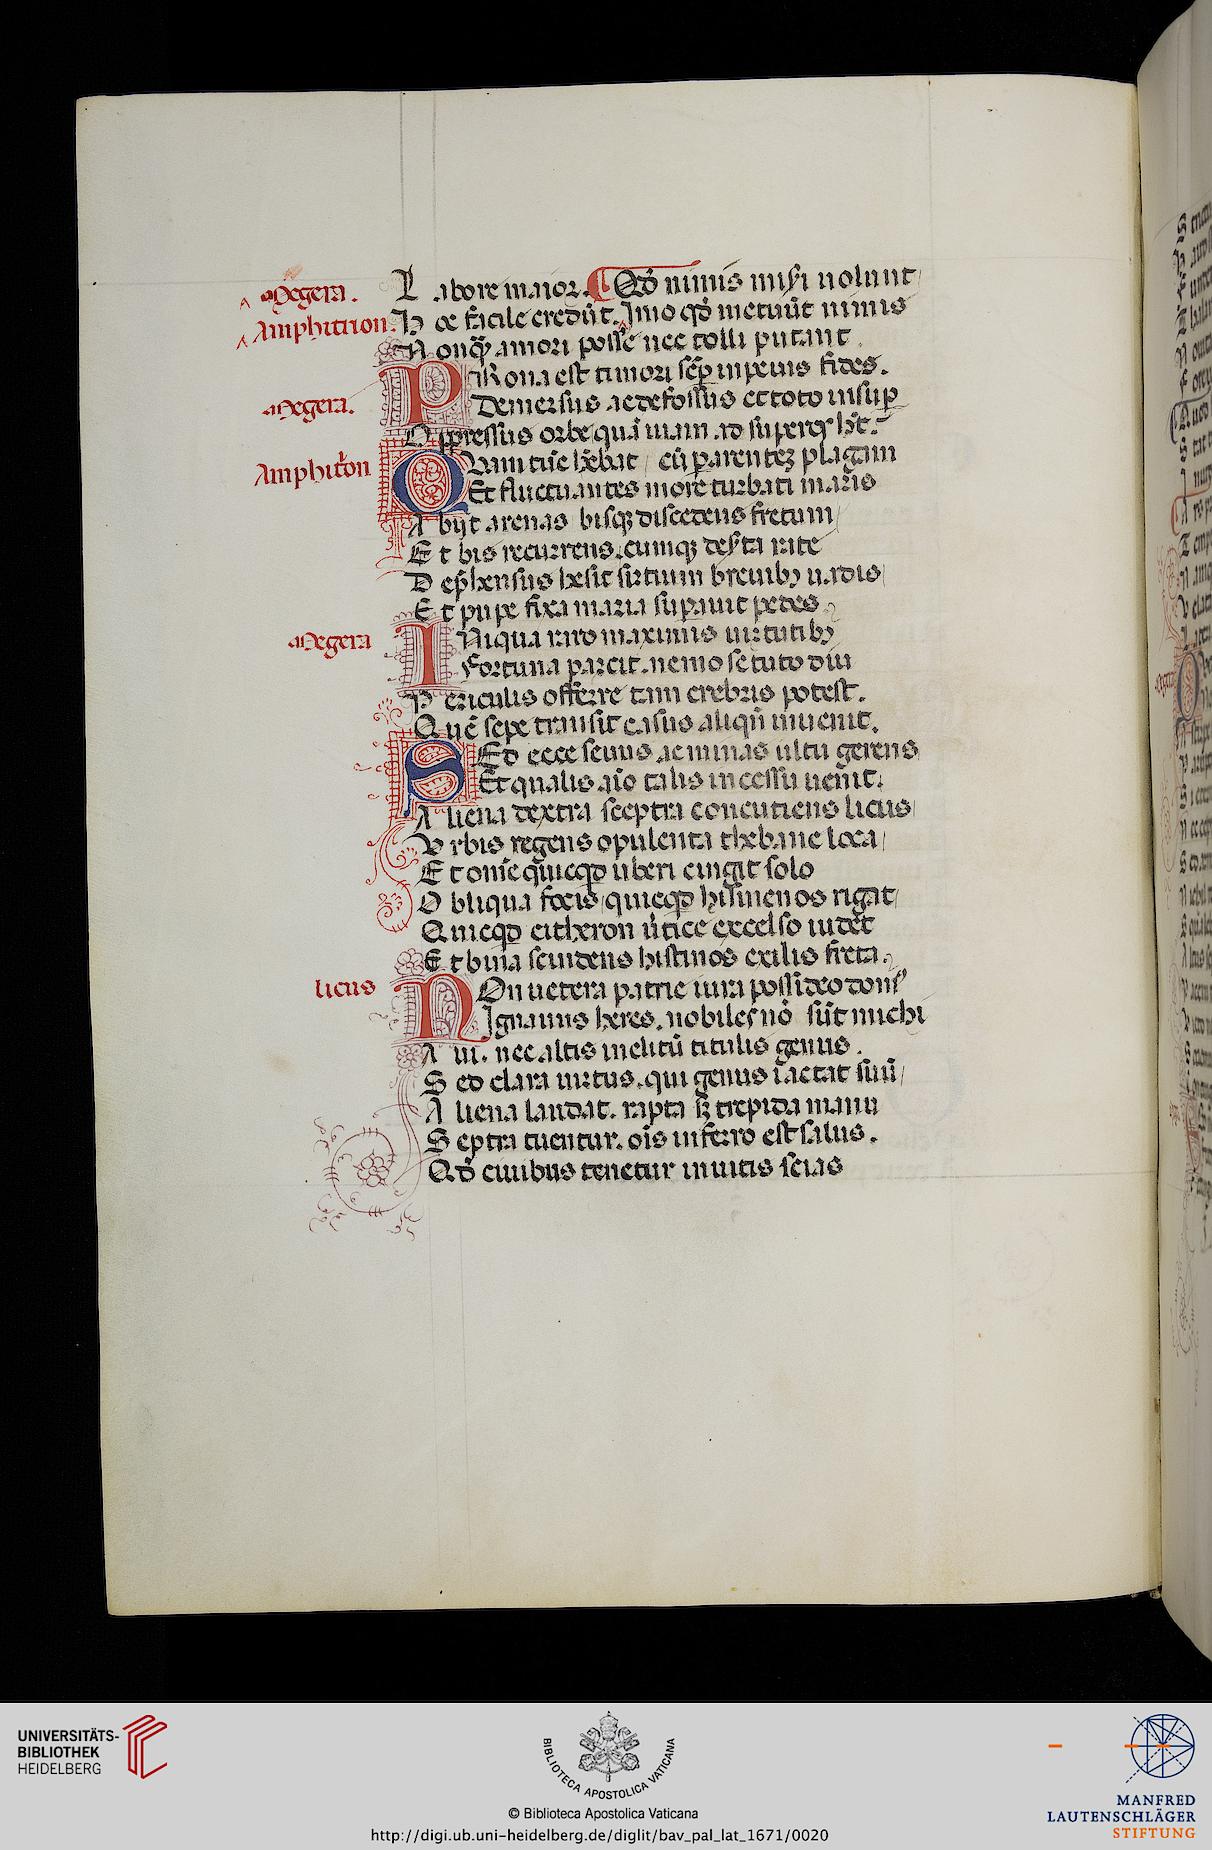 Megera.
Labore maior. Qđ nimis miſi nolunt
Amphitrion.
Hoc facile credūt. Imo qđ metuūt nimis
Nonqꝫ amori poſſe nec tolli putant.
Prona est timori ſēp in peius fides.
Megera.
Demersus ac defoſſus et toto insuꝑ
Oppreſſus orbe quā uiam ad superos hēt.
Amphitōn
Quam tūc hēbat cū ꝑ arentez plagam
Et fluctuantes more turbati maris
Abijt arenas bisqꝫ discedens fretum
Et bis recurrens. cumqꝫ deſrta rate
Dep̄hensus hesit sirtium breuibꝫ uadis
Et pupe fixa maria suꝑauit pedes.
Megera
Iniqua raro maximis uirtutibꝫ
Fortuna parcit. nemo se tuto diu
Periculis offerre tam crebris potest.
Quē sepe transit casus aliqn̄ inuenit.
Sed ecce seuus ac minas ultu gerens
Et qualis aīo talis incessu uenit.
Aliena dextra sceptra concutiens licus
Vrbis regens opulenta thebane loca
Et om̄e quicqd uberi cingit solo
Obliqua focis quicqd hismenos rigat
Quicqd citheron ūtice excelso uidet
Et bina scindens histmos exilis freta.
licus
Non uetera patrie iura possideo domꝰ
Ignauus heres. nobiles nō sūt michi
Aui. nec altis inclitū titulis genus.
Sed clara uirtus. qui genus iactat suū
Aliena laudat. rapta sꝫ trepida manu
Septra tuentur. oīs in ferro est salus.
Qđ ciuibus tenetur inuitis scias
UNIVERSITÄTS-
BIBLIOTHEK
HEIDELBERG
BIBLIOTECA APOSTOLICA VATICANA
© Biblioteca Apostolica Vaticana
http://digi.ub.uni-heidelberg.de/diglit/bav_pal_lat_1671/0020
MANFRED
LAUTENSCHLÄGER
STIFTUNG